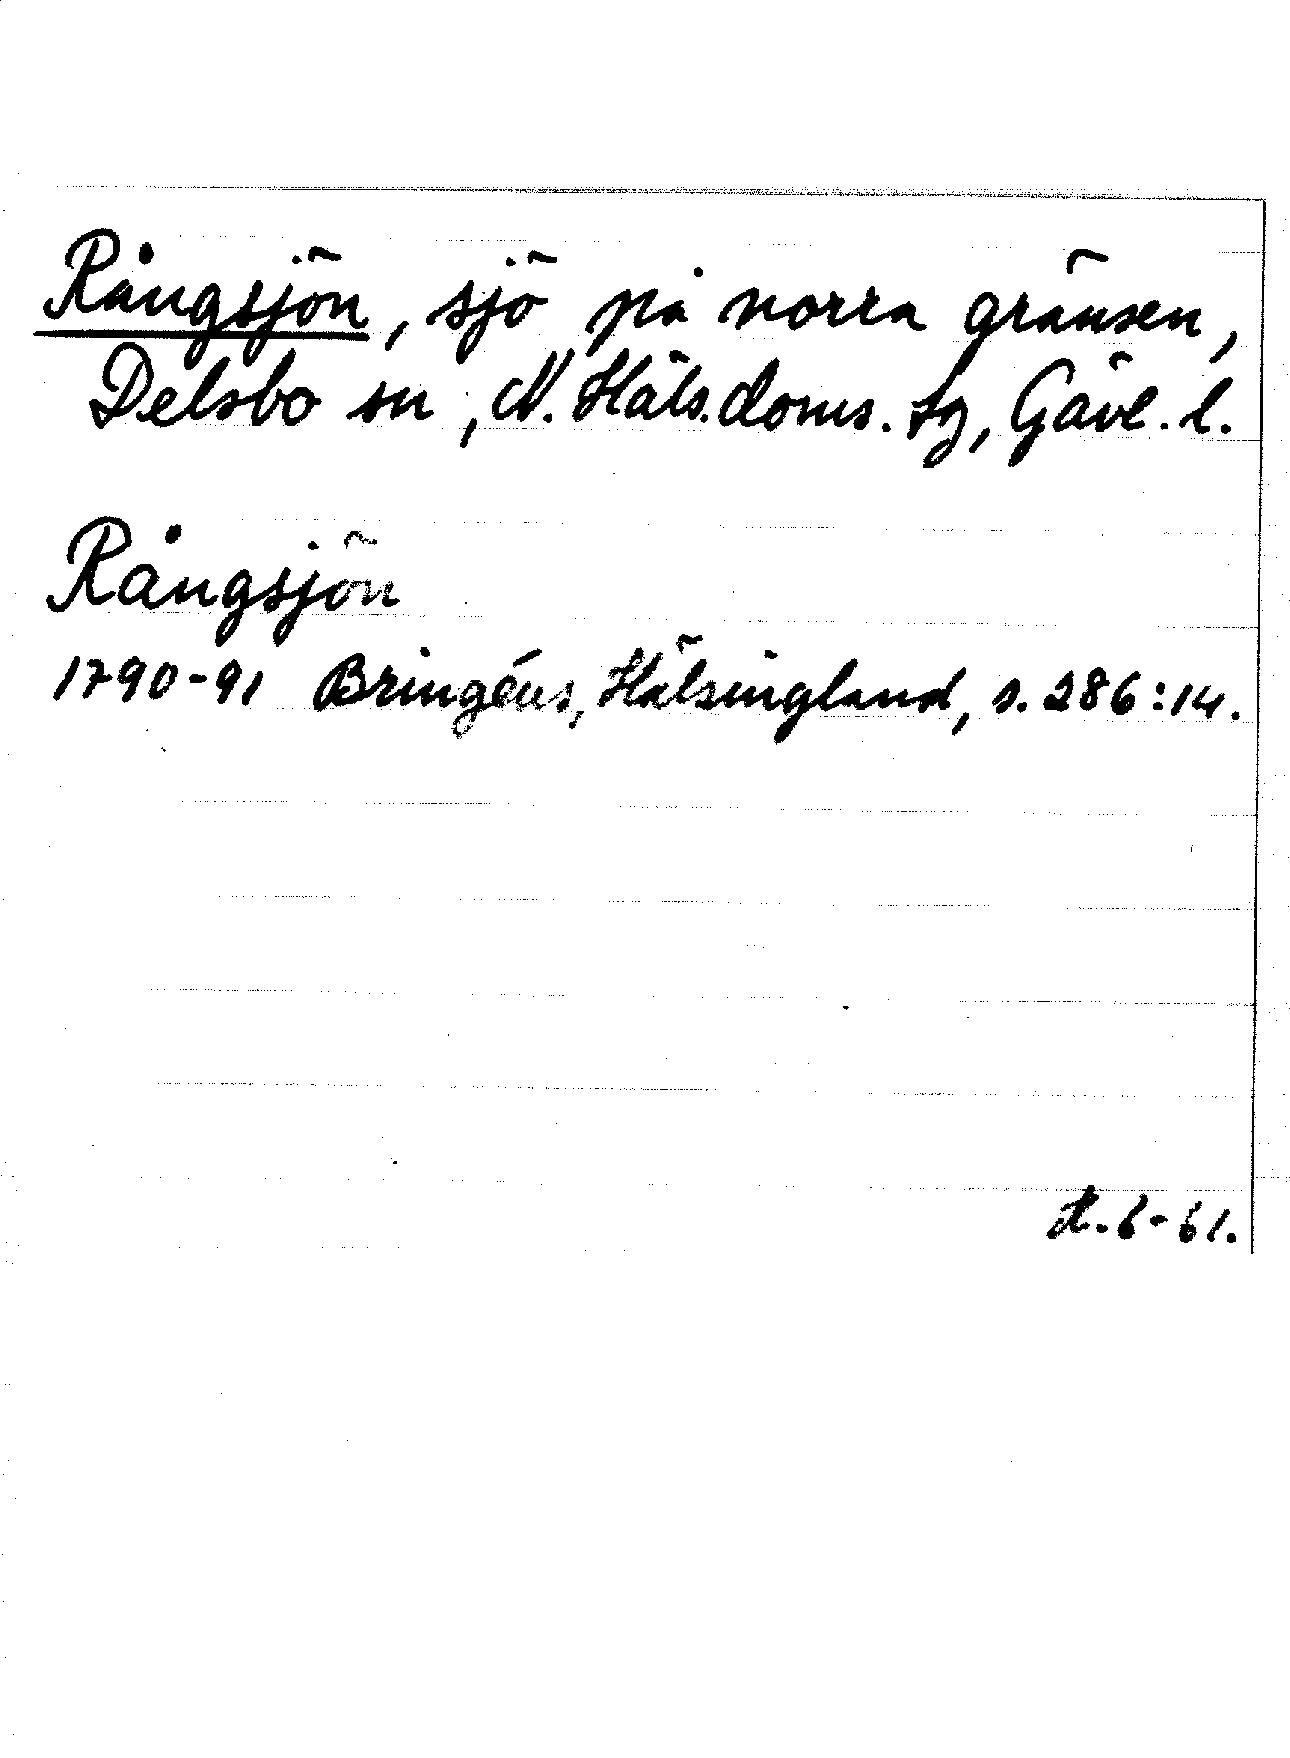 Rångsjön, sjö på norra gränsen,
Delsbo sn, N. Häls. doms. tg, Gävl. l.
Rångsjön
1790-91 Bringéus, Hälsingland, s. 286:14.
6-61.